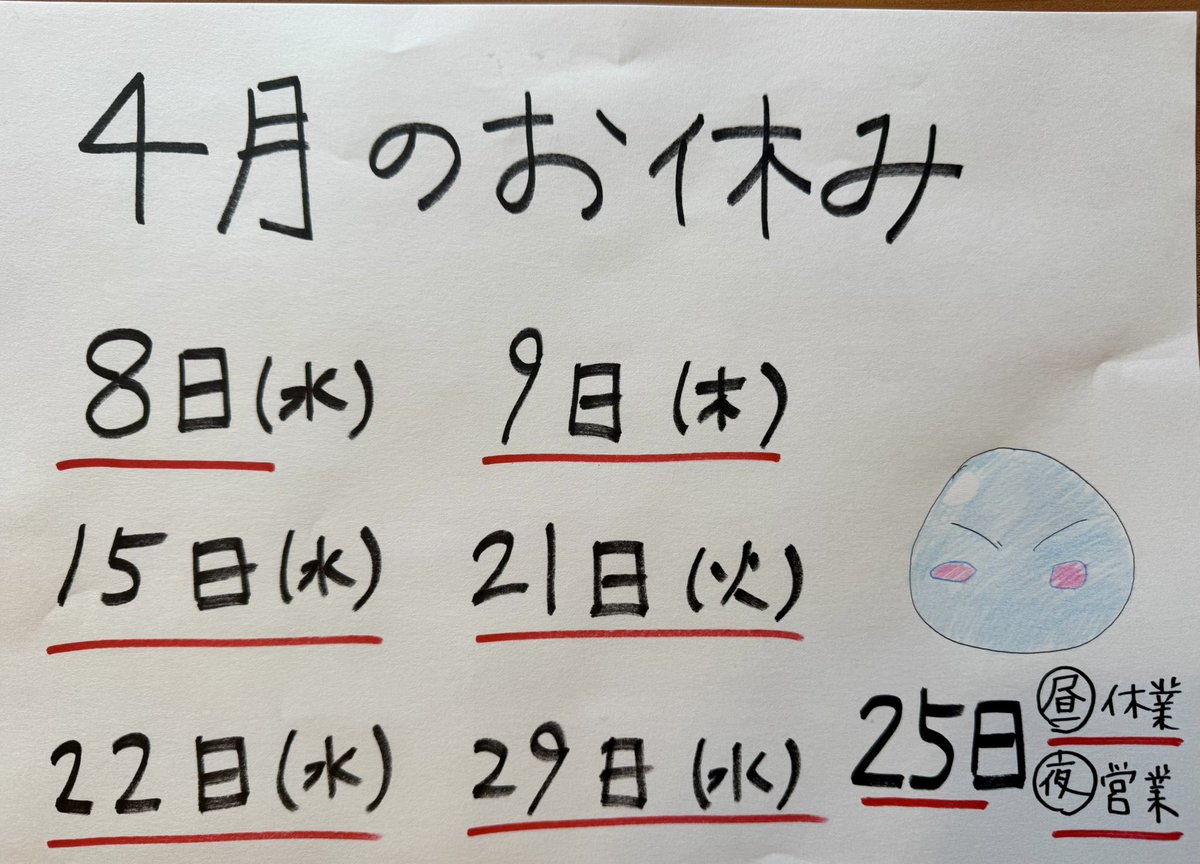 4月のお休み
8日(水) 9日(木)
15日(水) 21日(火)
22日(水) 29日(水)
25日 昼 休業
夜 営業